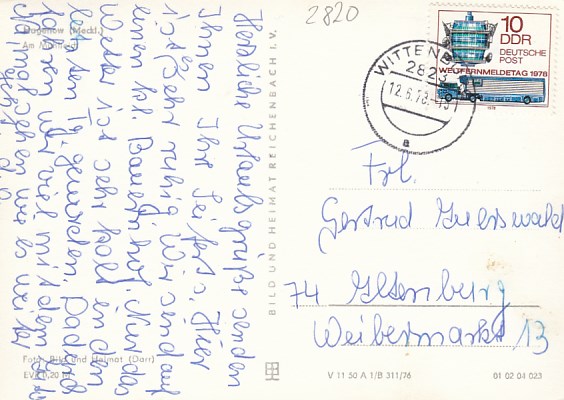 2820
Hagenow (Meckl.)
Am Mühlteich
Herzliche Urlaubsgrüße senden
Ihnen Ihr Seiferts. Hier
ist sehr ruhig Wir sind auf
einen kl. Bauernhof. Nur das
Wetter ist sehr kalt in den
letzten Tg. geworden. Dadurch
fahren wir viel mit dem Auto
mal sehen wie es weiter
geht.
BILD UND HEIMAT REICHENBACH I. V.
Foto: Bild und Heimat (Darr)
EVP 0,20 M
10
DDR
DEUTSCHE
POST
WELTFERNMELDETAG 1978
WITTENB
2823
12.6.78
a
Frl.
Gertrud
74 Altenburg
Weibermarkt 13
V 11 50 A 1/B 311/76
01 02 04 023